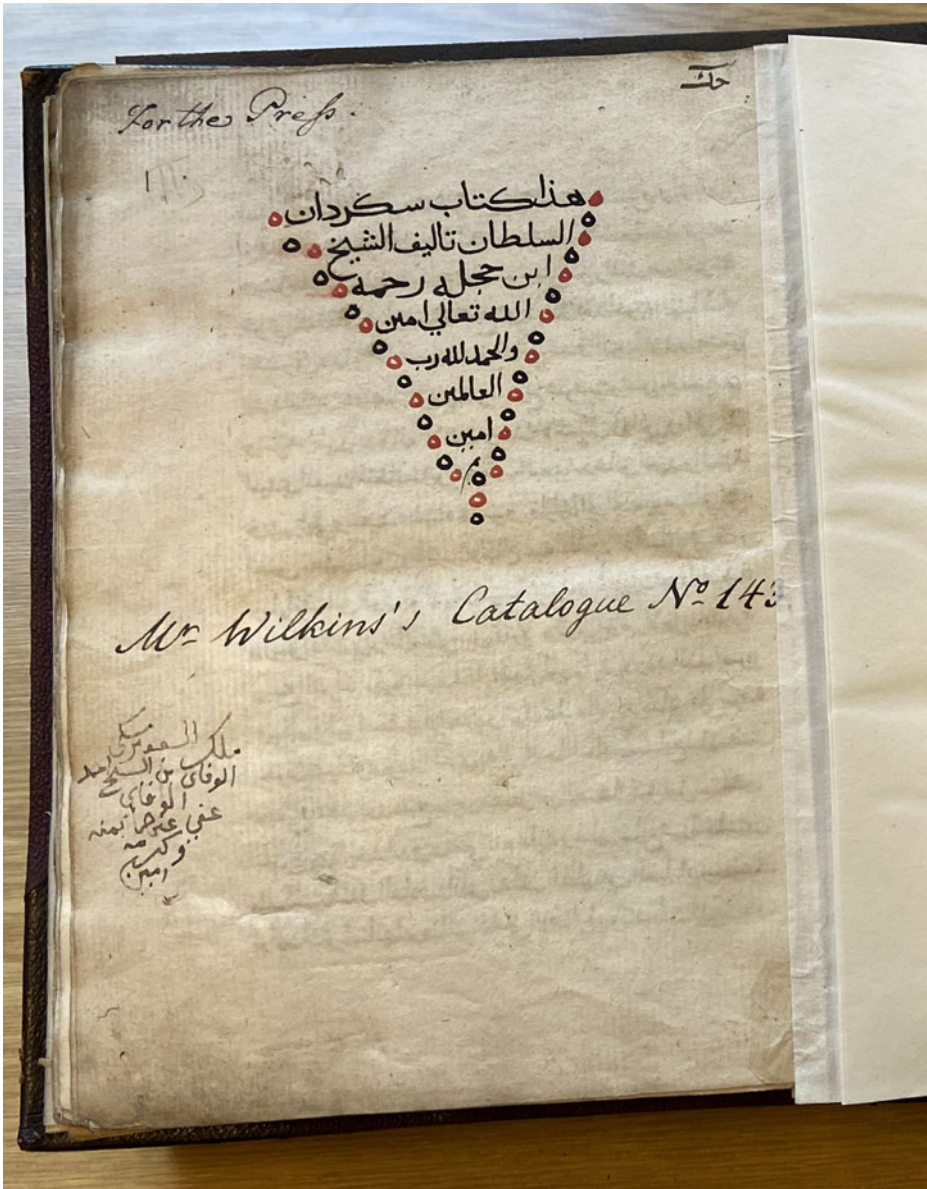 For the Press.
حك
هذا كتاب سكردان
السلطان تاليف الشيخ
ابن حجله رحمه
الله تعالي امين
والحمد لله رب
العالمين
امين
م
Mr Wilkins's Catalogue No 143
ملك
الوفاى بن الشيخ
الوفاى
عفي عنهما بمنه
وكرمه
امين